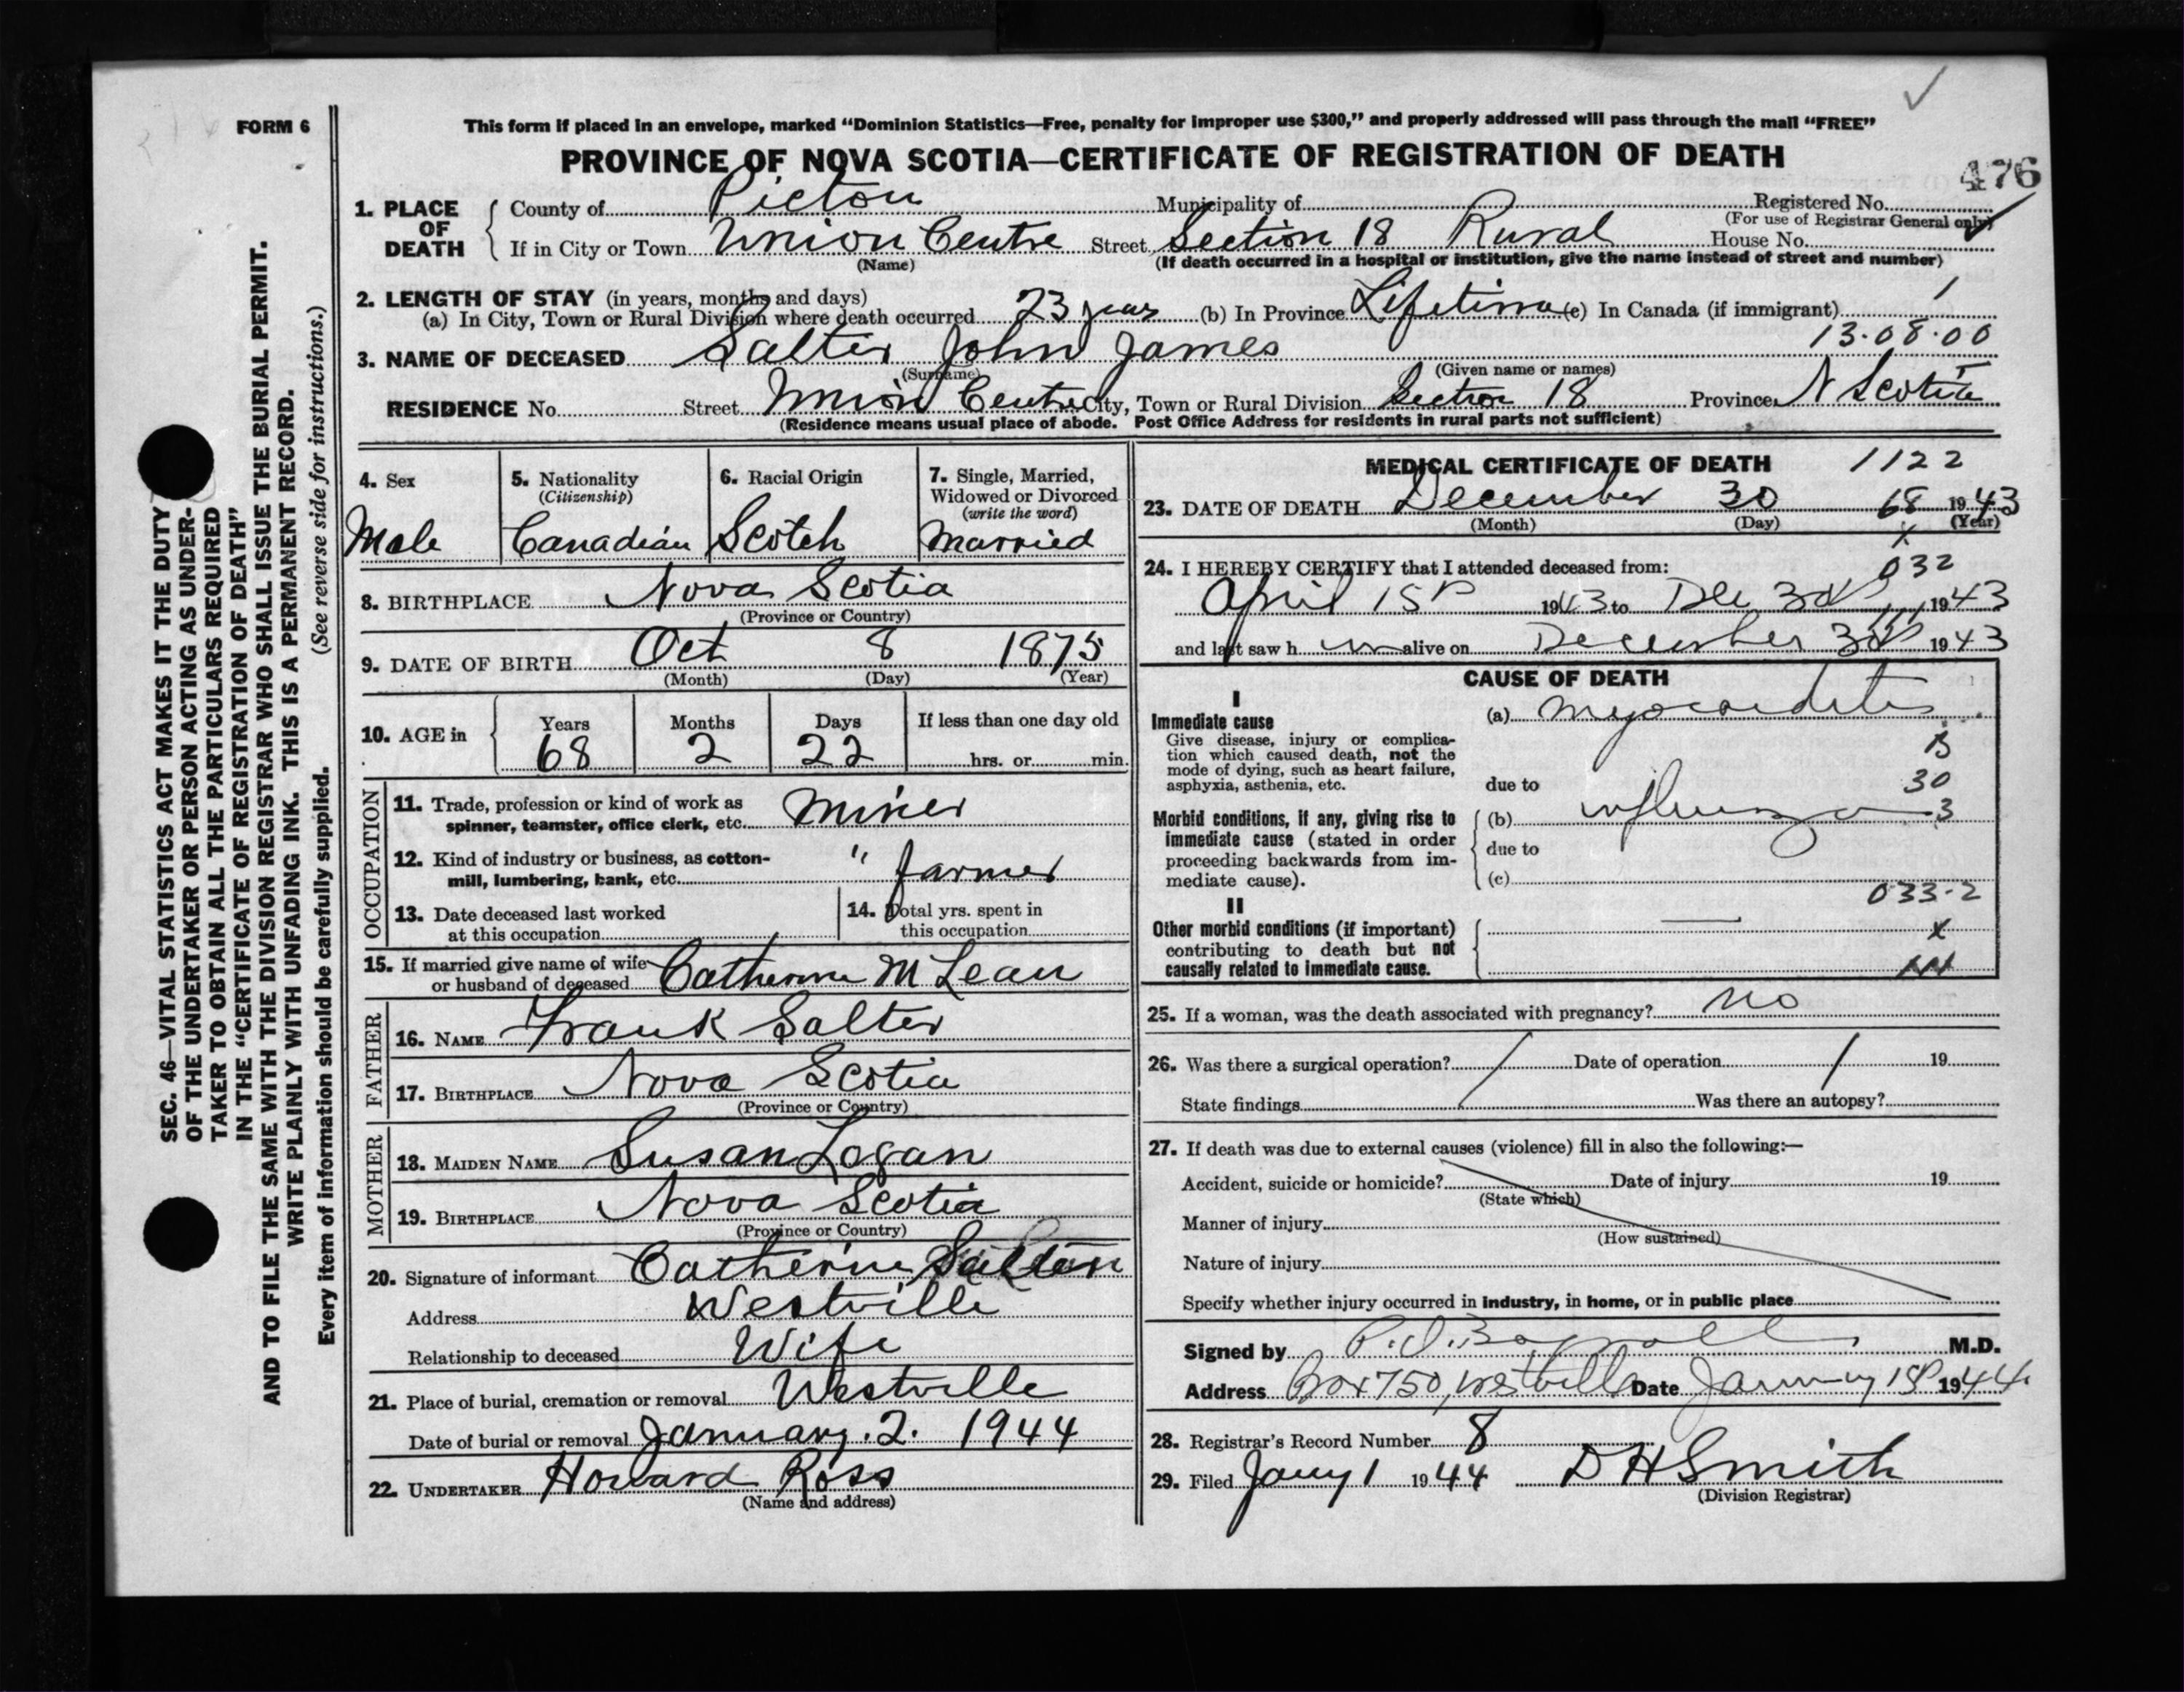 FORM 6
This form if placed in an envelope, marked “Dominion Statistics—Free, penalty for improper use $300,” and properly addressed will pass through the mail “FREE”
PROVINCE OF NOVA SCOTIA—CERTIFICATE OF REGISTRATION OF DEATH
476
1. PLACE OF DEATH
County of Pictou Municipality of Registered No.
(For use of Registrar General only)
If in City or Town Union Centre Street Section 18 Rural House No.
(Name) (If death occurred in a hospital or institution, give the name instead of street and number)
2. LENGTH OF STAY (in years, months and days)
(a) In City, Town or Rural Division where death occurred 23 years (b) In Province Lifetime (c) In Canada (if immigrant)
13.08.00
3. NAME OF DECEASED Salter John James
(Surname) (Given name or names)
RESIDENCE No. Street Union Centre City, Town or Rural Division Section 18 Province N Scotia
(Residence means usual place of abode. Post Office Address for residents in rural parts not sufficient)
4. Sex
Male
5. Nationality
(Citizenship)
Canadian
6. Racial Origin
Scotch
7. Single, Married,
Widowed or Divorced
(write the word)
Married
8. BIRTHPLACE Nova Scotia
(Province or Country)
9. DATE OF BIRTH Oct 8 1875
(Month) (Day) (Year)
10. AGE in
Years Months Days If less than one day old
68 2 22 hrs. or min.
OCCUPATION
11. Trade, profession or kind of work as
spinner, teamster, office clerk, etc. Miner
12. Kind of industry or business, as cotton-
mill, lumbering, bank, etc. " farmer
13. Date deceased last worked
at this occupation
14. Total yrs. spent in
this occupation
15. If married give name of wife
or husband of deceased Catherine McLean
FATHER
16. NAME Frank Salter
17. BIRTHPLACE Nova Scotia
(Province or Country)
MOTHER
18. MAIDEN NAME Susan Logan
19. BIRTHPLACE Nova Scotia
(Province or Country)
20. Signature of informant Catherine
Address Westville
Relationship to deceased Wife
21. Place of burial, cremation or removal Westville
Date of burial or removal January. 2. 1944
22. UNDERTAKER Howard Ross
(Name and address)
MEDICAL CERTIFICATE OF DEATH 1122
23. DATE OF DEATH December 30 68 1943
(Month) (Day) (Year)
24. I HEREBY CERTIFY that I attended deceased from:
032
April 1943 to Dec 1943
and last saw h im alive on December 1943
CAUSE OF DEATH
I
Immediate cause
Give disease, injury or complica-
tion which caused death, not the
mode of dying, such as heart failure,
asphyxia, asthenia, etc.
(a) Myocarditis
due to
30
Morbid conditions, if any, giving rise to
immediate cause (stated in order
proceeding backwards from im-
mediate cause).
(b) influenza 3
due to
(c)
033-2
II
Other morbid conditions (if important)
contributing to death but not
causally related to immediate cause.
x
25. If a woman, was the death associated with pregnancy? no
26. Was there a surgical operation? Date of operation 19
State findings Was there an autopsy?
27. If death was due to external causes (violence) fill in also the following:—
Accident, suicide or homicide? Date of injury 19
(State which)
Manner of injury
(How sustained)
Nature of injury
Specify whether injury occurred in industry, in home, or in public place
Signed by M.D.
Address Box 750, Westville Date January 1944
28. Registrar's Record Number 8
29. Filed Jany 1 1944 D H Smith
(Division Registrar)
SEC. 46—VITAL STATISTICS ACT MAKES IT THE DUTY
OF THE UNDERTAKER OR PERSON ACTING AS UNDER-
TAKER TO OBTAIN ALL THE PARTICULARS REQUIRED
IN THE “CERTIFICATE OF REGISTRATION OF DEATH”
AND TO FILE THE SAME WITH THE DIVISION REGISTRAR WHO SHALL ISSUE THE BURIAL PERMIT.
WRITE PLAINLY WITH UNFADING INK. THIS IS A PERMANENT RECORD.
Every item of information should be carefully supplied. (See reverse side for instructions.)